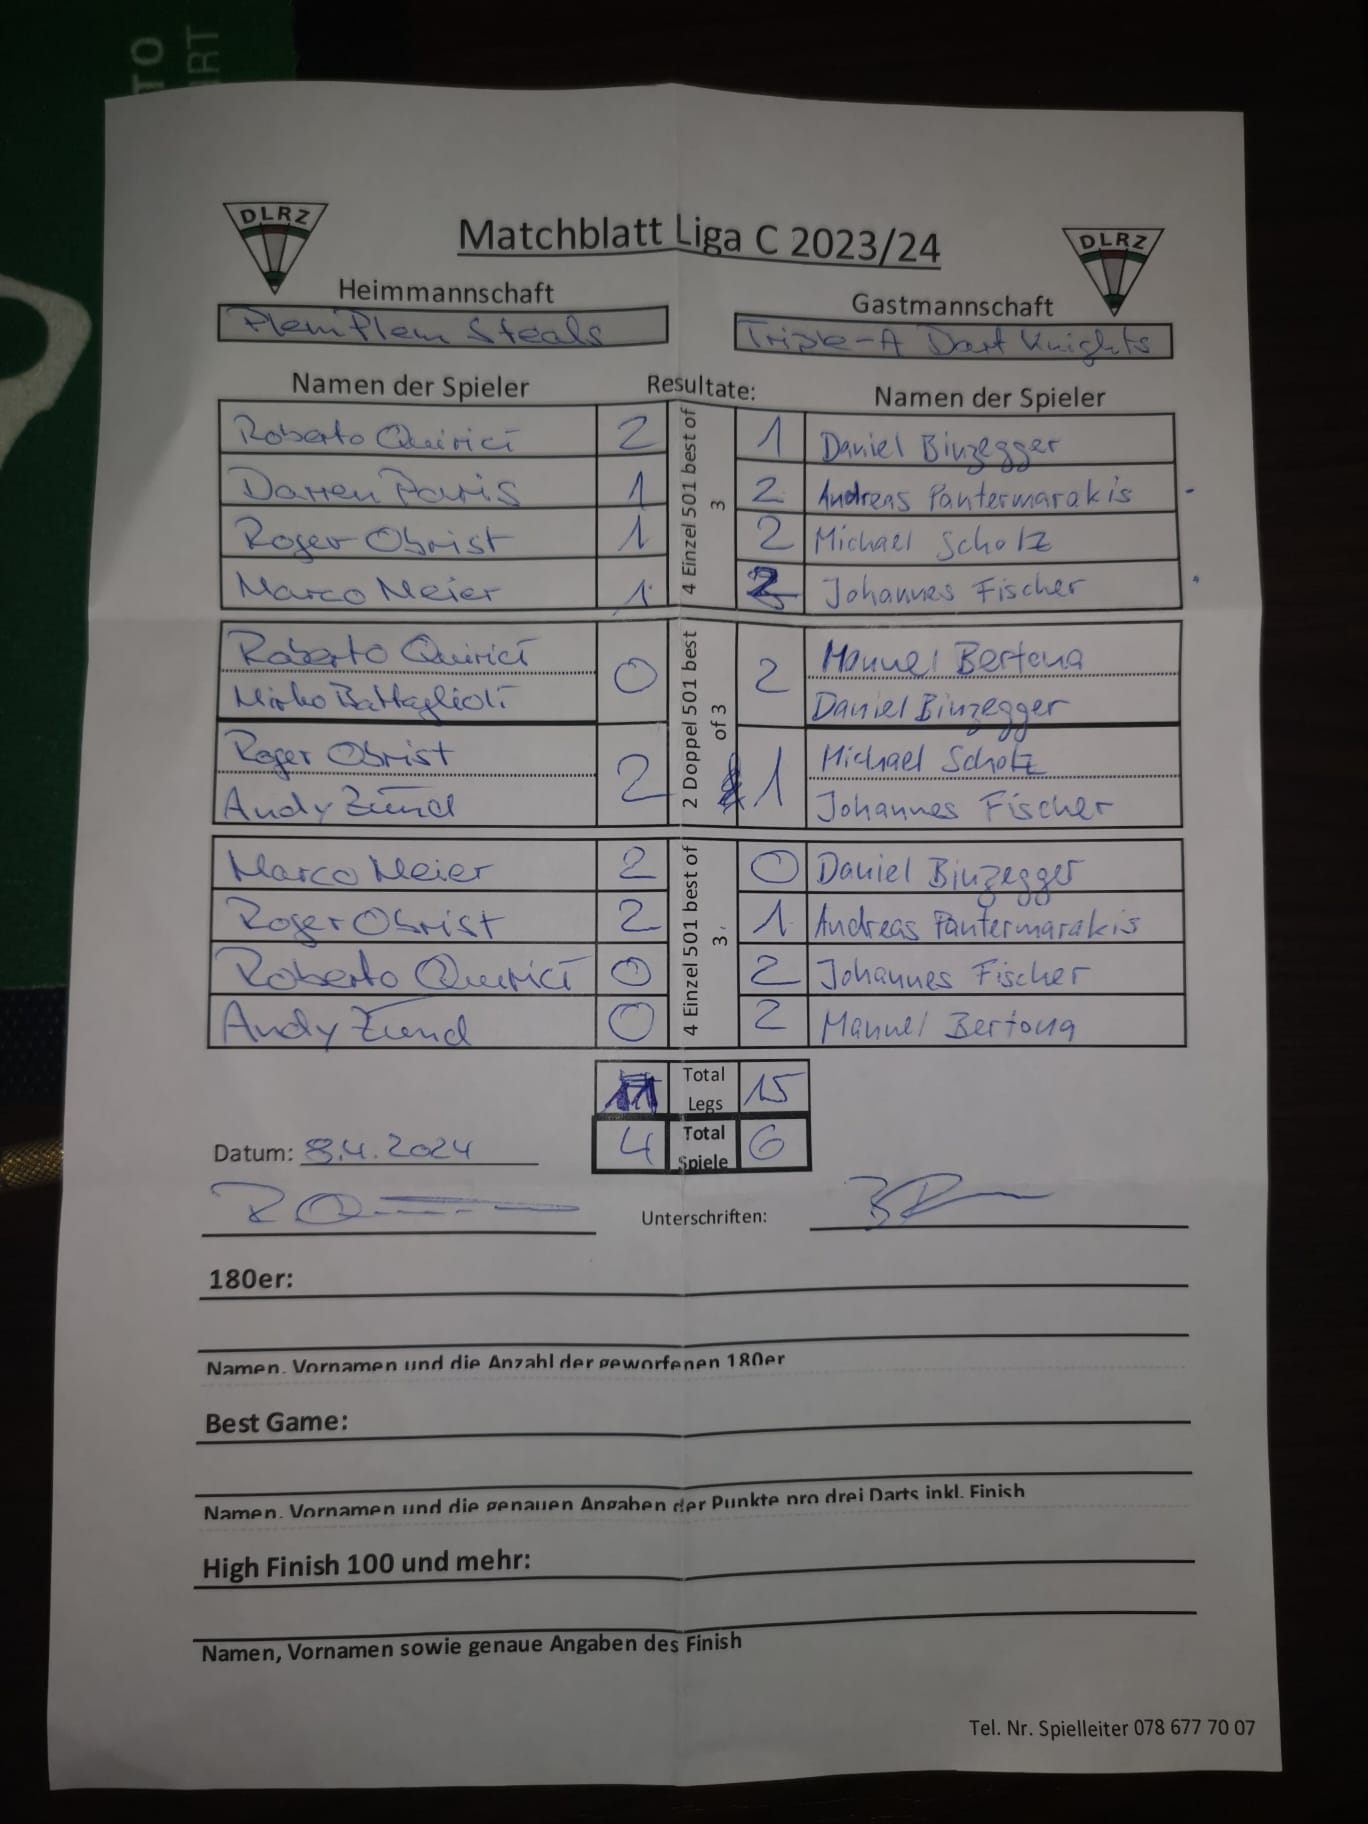 TO
ART
DLRZ
Matchblatt Liga C 2023/24
DLRZ
Heimmannschaft Gastmannschaft
PlemPlem Steals Triple-A Dart Knights
Namen der Spieler Resultate: Namen der Spieler
4 Einzel 501 best of 3
Roberto Quirici 2 1 Daniel Binzegger
Darren Paris 1 2 Andreas Pantermarakis
Roger Obrist 1 2 Michael Scholz
Marco Meier 1 2 Johannes Fischer
2 Doppel 501 best of 3
Roberto Quirici 0 2 Manuel Bertona
Mirko Battaglioli Daniel Binzegger
Roger Obrist 2 1 Michael Scholz
Andy Zünd Johannes Fischer
4 Einzel 501 best of 3.
Marco Meier 2 0 Daniel Binzegger
Roger Obrist 2 1 Andreas Pantermarakis
Roberto Quirici 0 2 Johannes Fischer
Andy Zünd 0 2 Manuel Bertona
11 Total Legs 15
4 Total Spiele 6
Datum: 8.4.2024
Unterschriften:
180er:
Namen, Vornamen und die Anzahl der geworfenen 180er
Best Game:
Namen, Vornamen und die genauen Angaben der Punkte pro drei Darts inkl. Finish
High Finish 100 und mehr:
Namen, Vornamen sowie genaue Angaben des Finish
Tel. Nr. Spielleiter 078 677 70 07